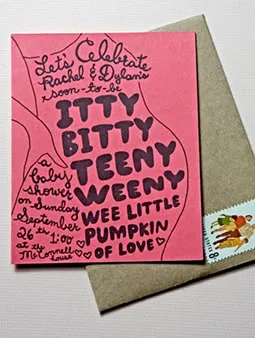 Let's Celebrate
Rachel & Dylan's
soon-to-be
ITTY
BITTY
TEENY
WEENY
WEE LITTLE
PUMPKIN
OF LOVE
a
baby
shower
on Sunday
September
26th 1:00
at the
McConnell
house
8